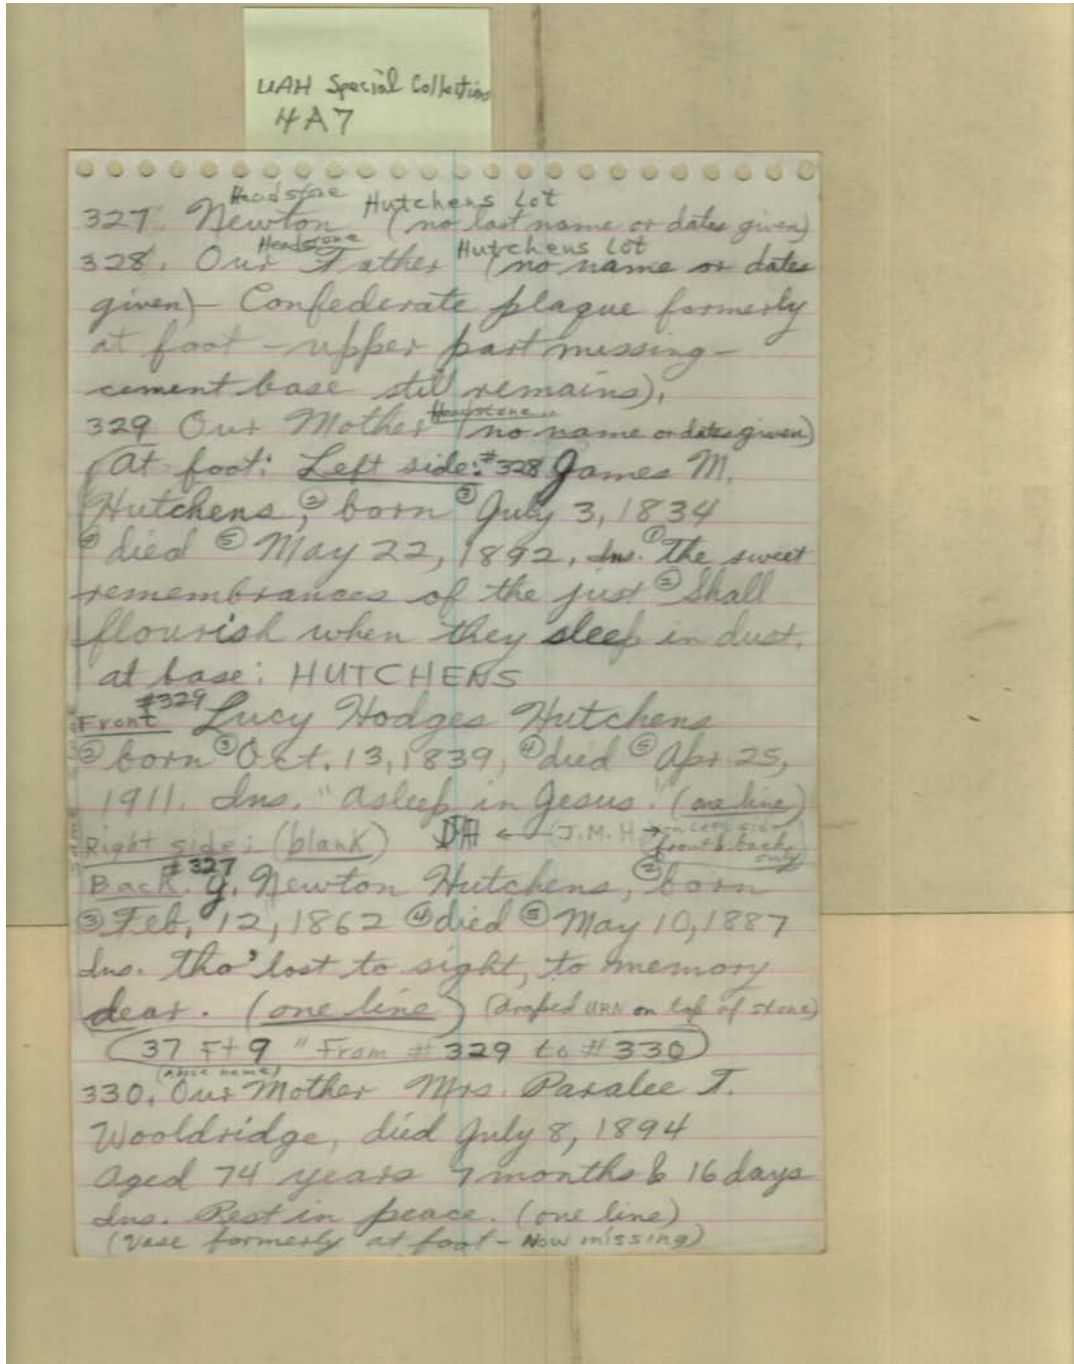 UAH Special Collections
4A7
Headstone Hutchens Lot
327. Newton (no last name or dates given)
Headstone Hutchens Lot
328. Our Father (no name or dates
given) – Confederate plaque formerly
at foot – upper part missing –
cement base still remains).
Headstone
329 Our Mother (no name or dates given)
At foot: Left side: #328 James M.
Hutchens, ② born ③ July 3, 1834
④ died ⑤ May 22, 1892, Ins. ① The sweet
remembrances of the just ② Shall
flourish when they sleep in dust.
at base: HUTCHENS
Front #329 Lucy Hodges Hutchens
② born ③ Oct. 13, 1839, ④ died ⑤ Apr. 25,
1911. Ins. "Asleep in Jesus." (one line)
Right side: (blank) ← J.M.H → on Left side
front & back
only
Back. #327 J. Newton Hutchens, ② born
③ Feb. 12, 1862 ④ died ⑤ May 10, 1887
Ins. Tho' lost to sight, to memory
dear. (one line) (draped URN on top of stone)
37 Ft 9 " From # 329 to # 330
(above name)
330. Our Mother Mrs. Paralee T.
Wooldridge, died July 8, 1894
Aged 74 years 7 months & 16 days
Ins. Rest in peace. (one line)
(Vase formerly at foot – Now missing)